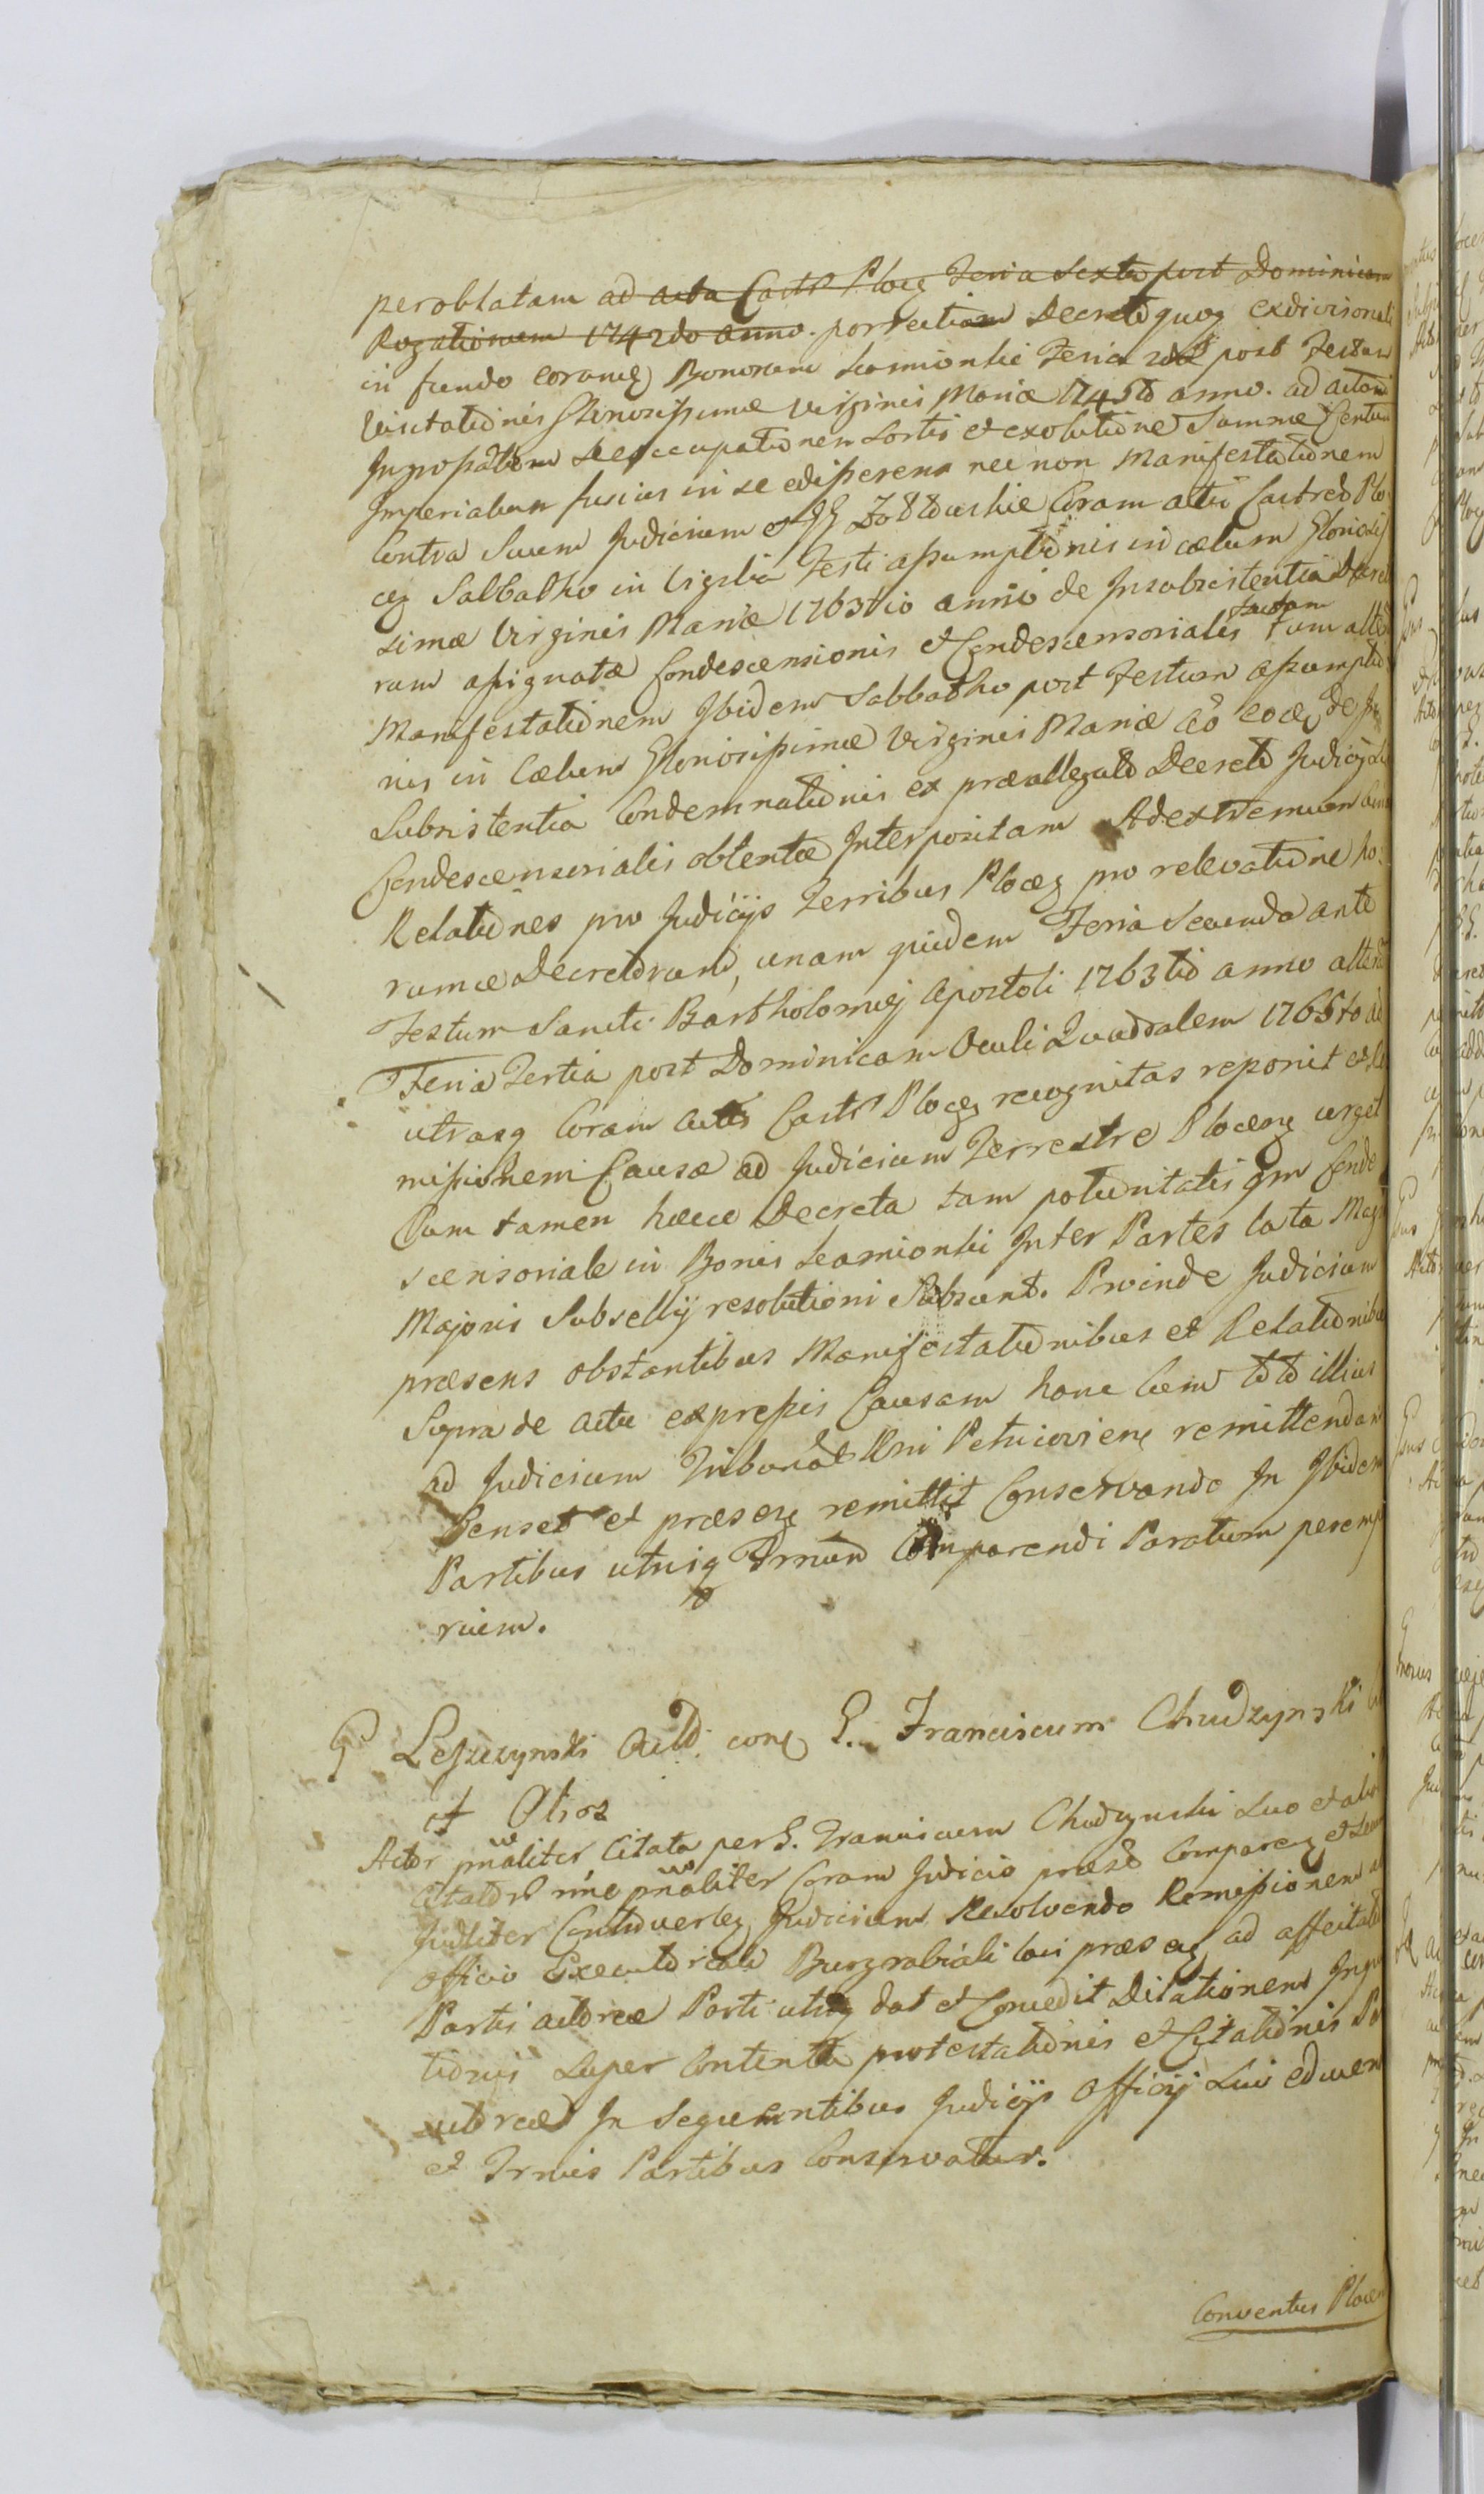 peroblatam ad acta Castr Ploc Feria Sexta post Dominicam
Rogationum 1742do anno. porrectam Decreti quoq exdivisionali
in fundo eorumq Bonorum Lamionki Feria 2da post Festum
Visitationis Gloriosissimæ Virginis Mariæ 1745to anno. ad actom
Ingrossatum occupationem Sortis et exolutione Summæ Centum
Imperialium fusius in se edisseren nec non Manifestationem
Contra Suum Judicium et GG Zoltowskie Coram actis Castred Plo
ceg Sabbatho in Vigilia Festi assumptionis in cælum Gloriosis
simæ Virginis Mariæ 1763tio anno de Insubsistentia
rum assignatæ Condescensionis et Condescensorialis factam Tum alte
Manifestationem Ibidem Sabbatho post Festum assumptio
nis in Cælum Gloriosissimæ Virginis Mariæ aõ eoq de In
Subsistentia Condemnationis ex præallegato Decreto Judicÿ
Condescensorialis obtentæ Interpositam Adextremum
Relationes pro Judicÿs Terribus Ploceg pro relevatione ho
rumce Decretorum, unam quidem Feria Secunda ante
Festum Sancti Bartholomæj Apostoli 1763tio anno alteram
Feria Tertia post Dominicam Oculi Quadralem 1765to ad
utrasq Coram Actis Castr Ploceg recognitas reponit et Re
missionem Causæ ad Judicium Terrestre Plocens urget
Cum tamen hæce Decreta tam potioritatis qm Conde
scensoriale in Bonis Lamionki Inter Partes lata
Majoris Subsellÿ resolutioni Subsunt. Proinde Judicium
præsens obstantibus Manifestationibus et Relationibus
Supra de actu expressis Causam hanc Cum toto illius
ad Judicium Tribunal Rni Petricovien remittendam
Censet et præseq remittit Conservando In Ibidem
Partibus utriq Trnum Comparendi Paratum peremp
rium.
G Leszczynski Actor conq G. Franciscum Chudzynski
et Alios
Actor pnaliter Citata per G. Franciscum Chudzynski Suo et alior
Citator nine pnaliter Coram Judicio præst Compareng et
Judliter Controverteq Judicium Resolvendo Remissionem
officio Executoriali Burgrabiali loci præseg ad affectato
Partis actoreæ Parti utriq dat et Concedit Dilationem
tionis Super Contenta protestationis et Citationis
actoreæ In Sequentibus Judicÿs officÿ Sui
et Trnus Partibus Conservatur.
Conventus Plocen